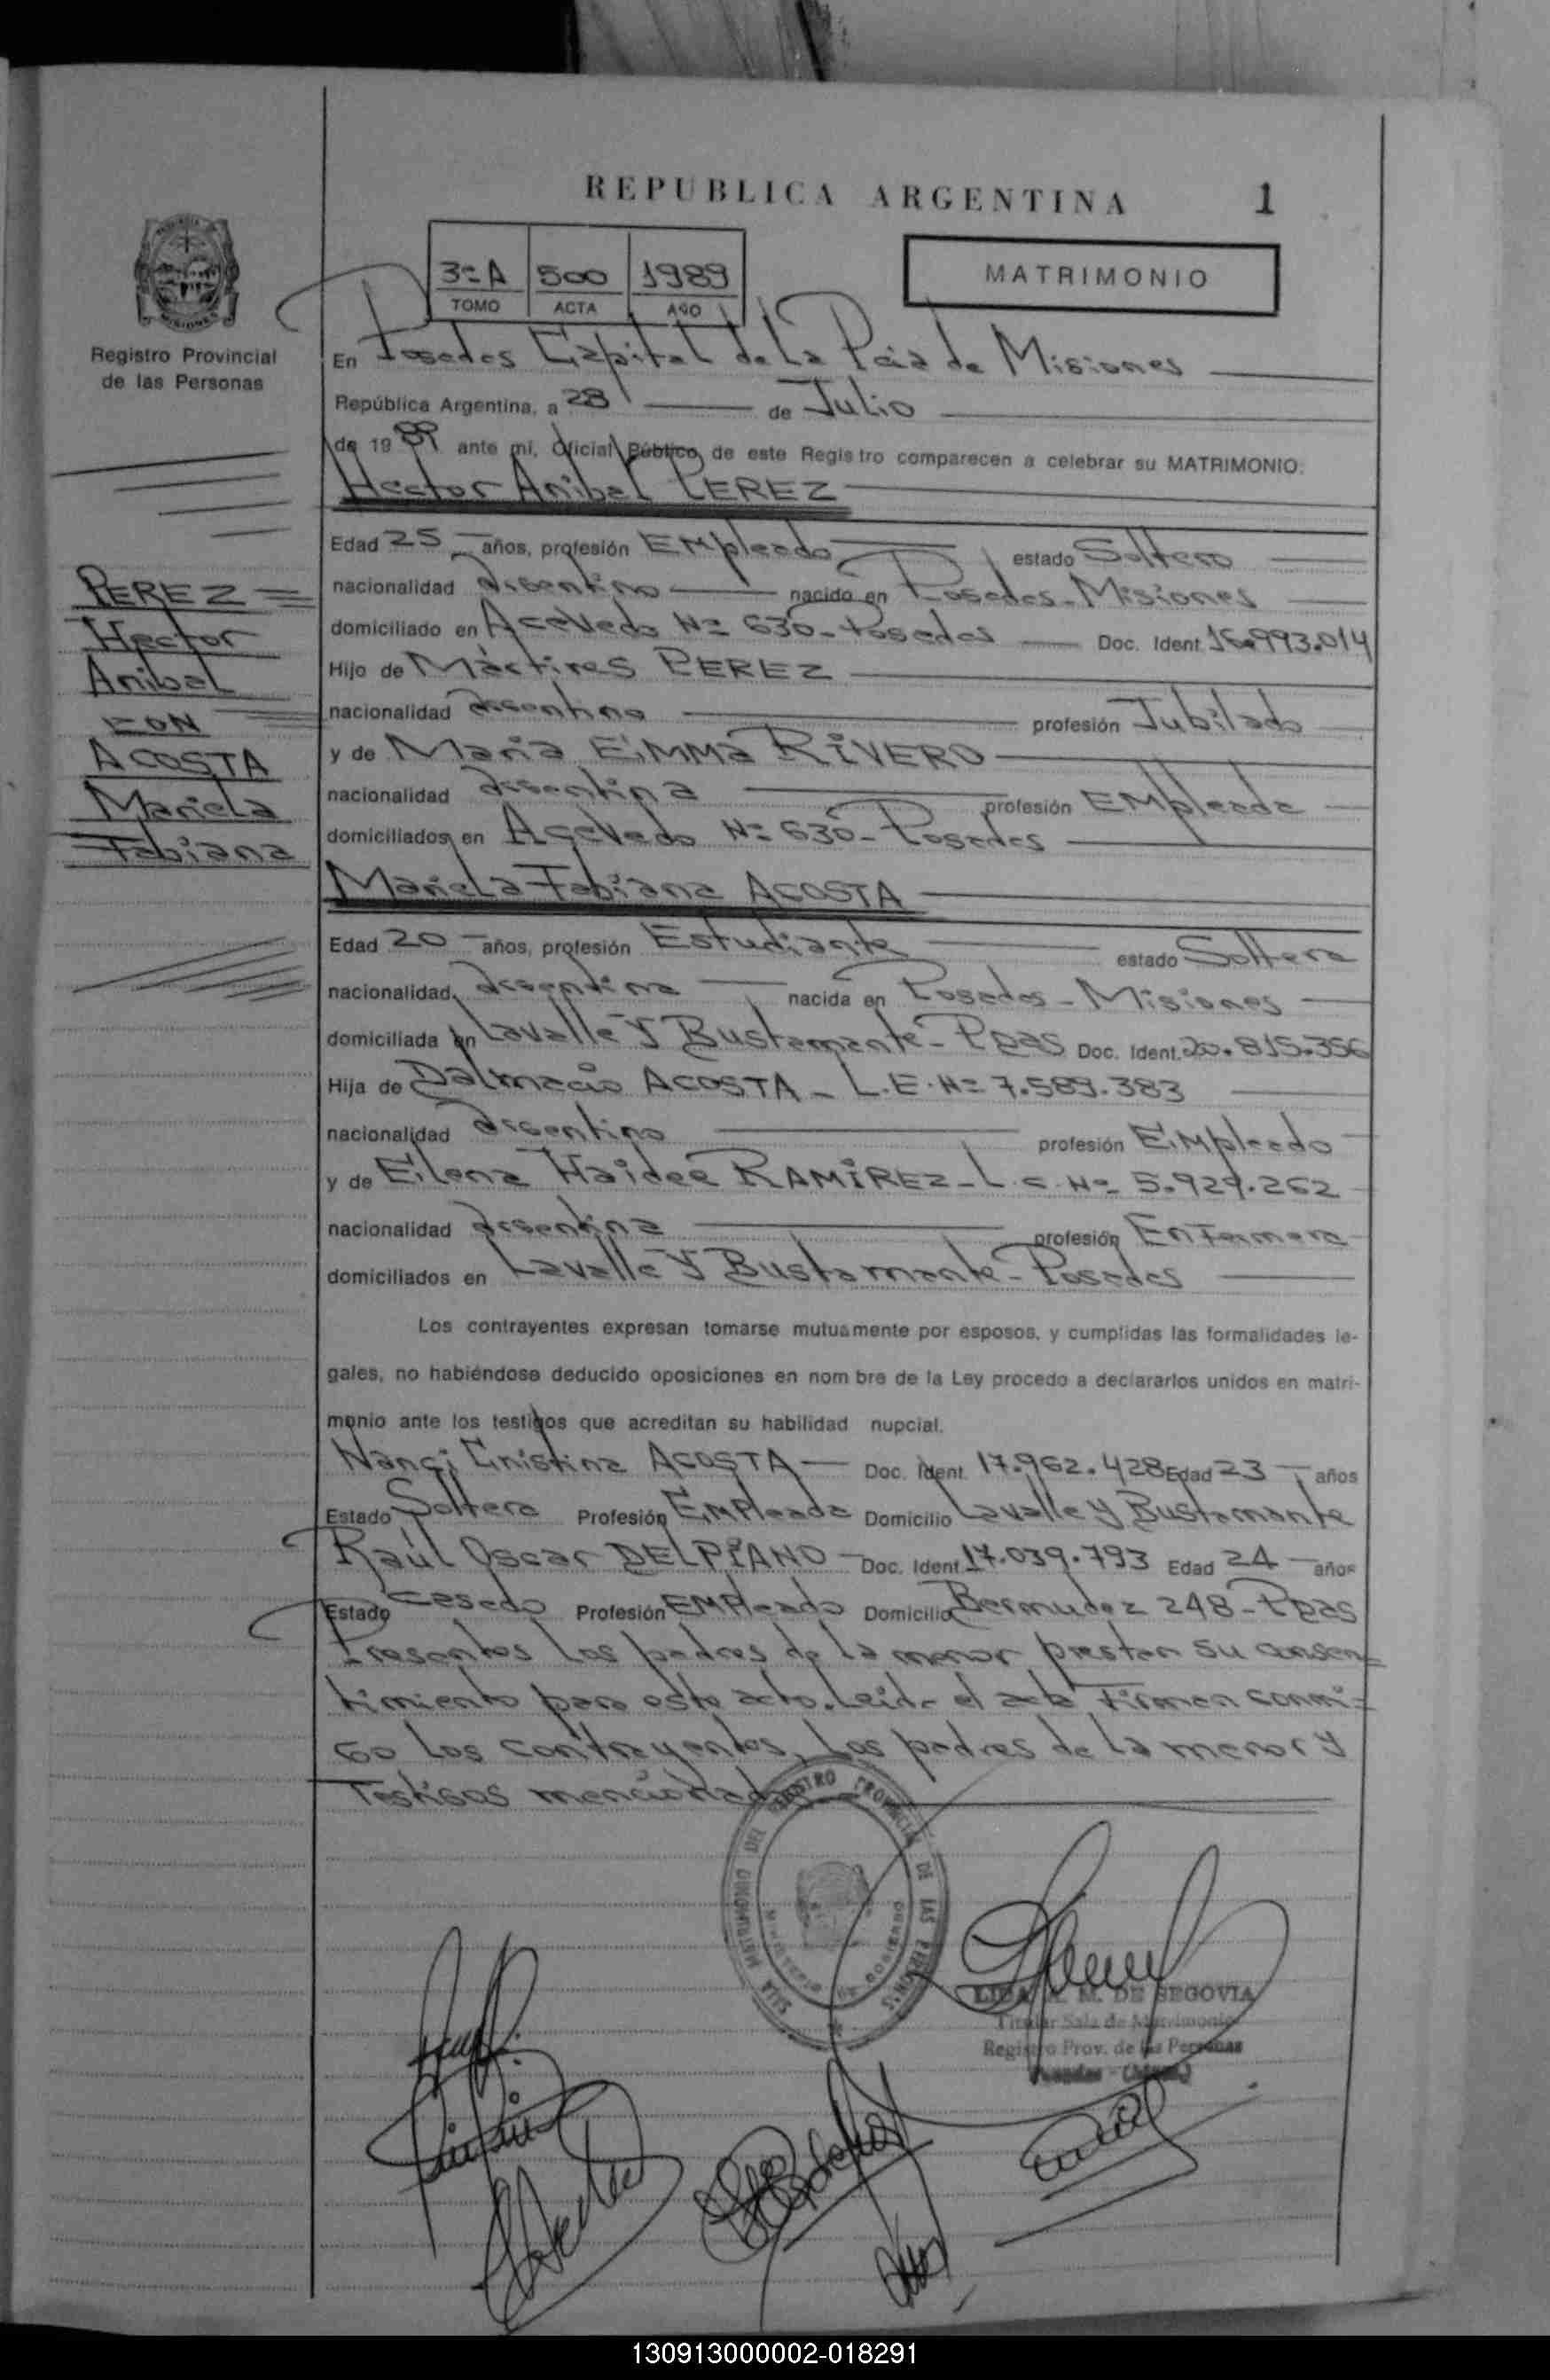 REPUBLICA ARGENTINA 1
3ª A 500 1989
TOMO ACTA AÑO
MATRIMONIO
Registro Provincial
de las Personas
En Posadas Capital de la Pcia de Misiones
República Argentina, a 28 de Julio
de 1989 ante mi, Oficial Público, de este Registro comparecen a celebrar su MATRIMONIO:
Hector Anibal PEREZ
Edad 25 años, profesión Empleado estado Soltero
nacionalidad argentino nacido en Posadas - Misiones
domiciliado en Acevedo Nº 630 - Posadas Doc. Ident. 16.993.014
Hijo de Mártires PEREZ
nacionalidad argentino profesión Jubilado
y de Maria Emma RIVERO
nacionalidad argentina profesión Empleada
domiciliados en Acevedo Nº 630 - Posadas
PEREZ
Hector
Anibal
CON
ACOSTA
Mariela
Fabiana
Mariela Fabiana ACOSTA
Edad 20 años, profesión Estudiante estado Soltera
nacionalidad argentina nacida en Posadas - Misiones
domiciliada en Lavalle y Bustamante - Pdas Doc. Ident. 20.815.356
Hija de Dalmacio ACOSTA - L.E. Nº 7.589.383
nacionalidad argentino profesión Empleado
y de Elena Haidee RAMIREZ - L.C. Nº 5.929.262
nacionalidad argentina profesión Enfermera
domiciliados en Lavalle y Bustamante - Posadas
Los contrayentes expresan tomarse mutuamente por esposos, y cumplidas las formalidades le-
gales, no habiéndose deducido oposiciones en nom bre de la Ley procedo a declararlos unidos en matri-
monio ante los testigos que acreditan su habilidad nupcial.
Nanci Cristina ACOSTA Doc. Ident. 17.962.428 Edad 23 años
Estado Soltera Profesión Empleada Domicilio Lavalle y Bustamante
Raúl Oscar DELPIANO Doc. Ident. 17.039.793 Edad 24 años
Estado Casado Profesión Empleado Domicilio Bermudez 248 - Pdas
Presentes los padres de la menor prestan su consen=
timiento para este acto. Leida el acta firman conmi=
go los contrayentes, los padres de la menor y
Testigos mencionados
SALA MATRIMONIO DEL REGISTRO PROVINCIAL DE LAS PERSONAS
MINISTERIO DE GOBIERNO
M. DE SEGOVIA
Titular Sala de Matrimonio
Registro Prov. de las Personas
Posadas - (Mnes.)
130913000002-018291